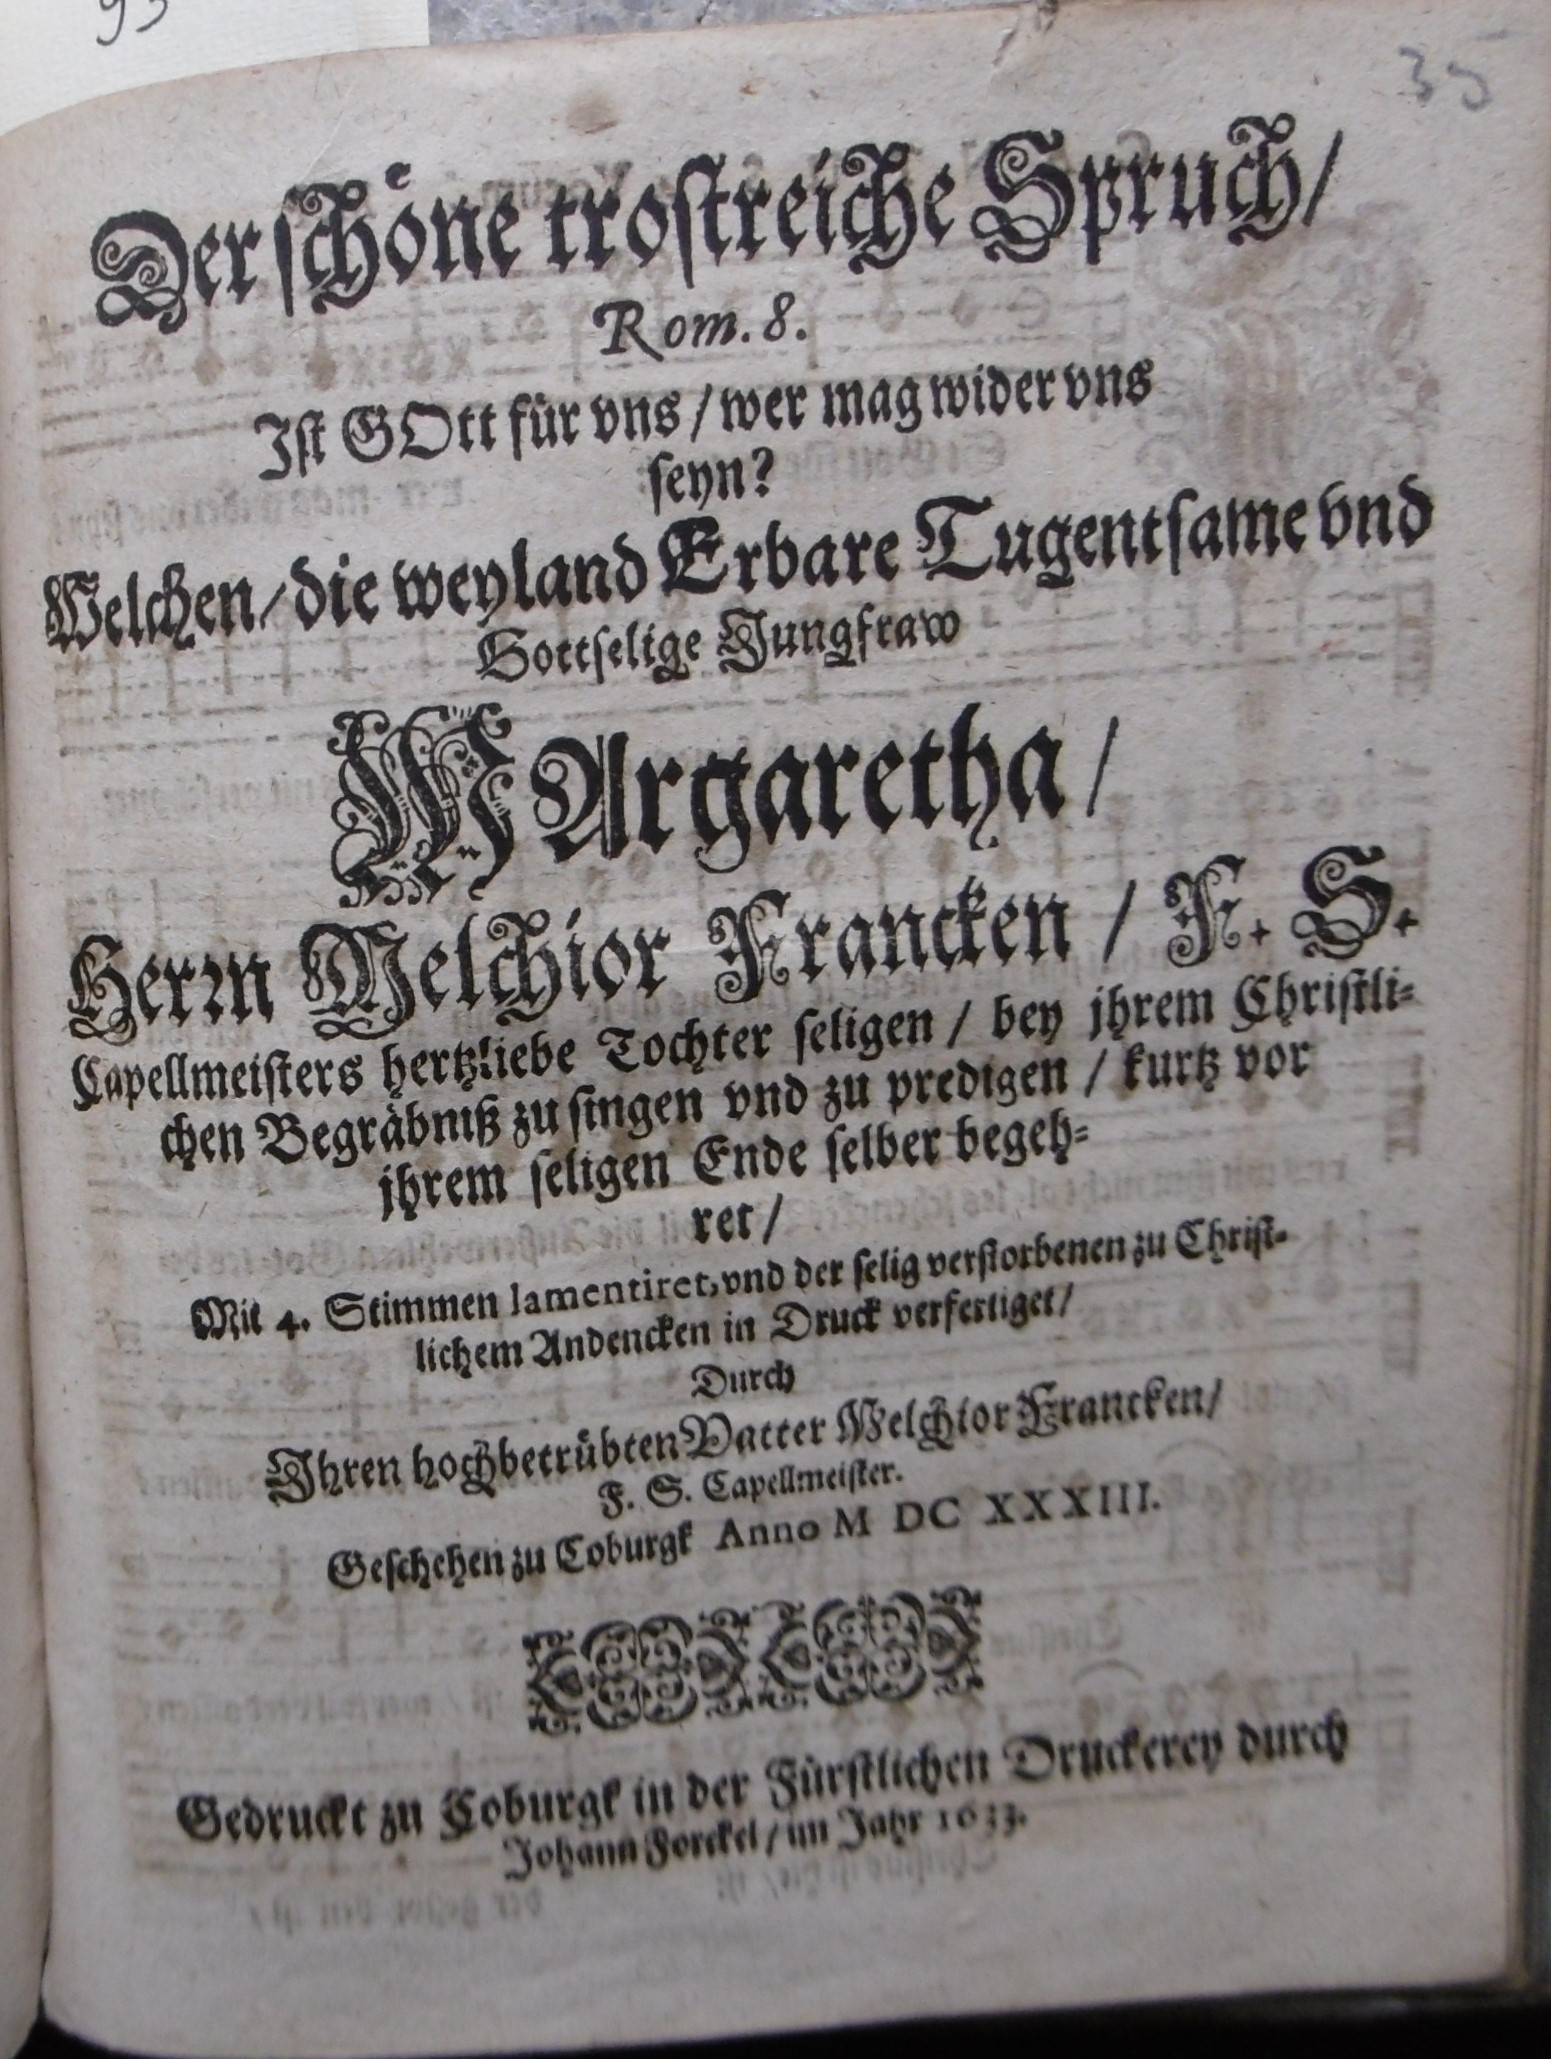 93
35
Der schöne trostreiche Spruch/
Rom. 8.
Ist GOtt für vns / wer mag wider vns
seyn?
Welchen/die weyland Erbare Tugentsame vnd
Gottselige Jungfraw
MArgaretha /
Herrn Melchior Francken / F. S.
Capellmeisters hertzliebe Tochter seligen / bey jhrem Christli-
chen Begräbniß zu singen vnd zu predigen / kurtz vor
jhrem seligen Ende selber begeh-
ret /
Mit 4. Stimmen lamentiret, vnd der selig verstorbenen zu Christ-
lichem Andencken in Druck verfertiget/
Durch
Ihren hochbetrübten Vatter Melchior Francken/
F. S. Capellmeister.
Geschehen zu Coburgk Anno M DC XXXIII.
Gedruckt zu Coburgk in der Fürstlichen Druckerey durch
Johann Forckel / im Jahr 1633.